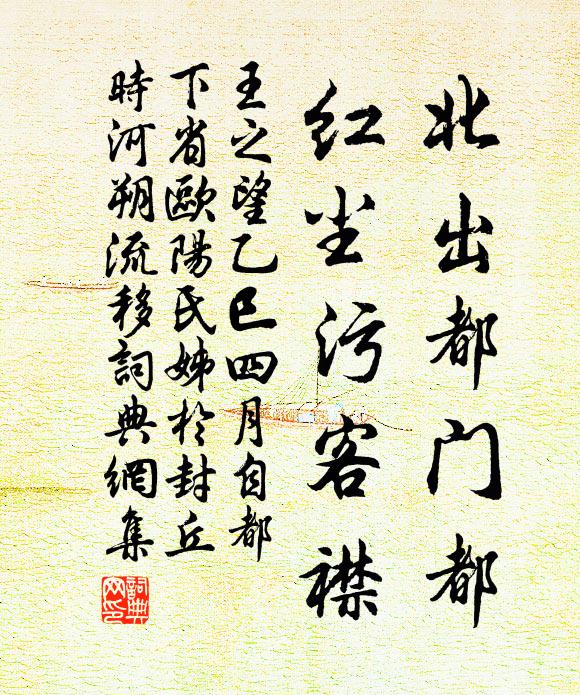 北出都门都
红尘污客襟
王之望乙巳四月自都
下省歐陽氏姊於封丘
時河朔流移詞典網集
詞典
网印